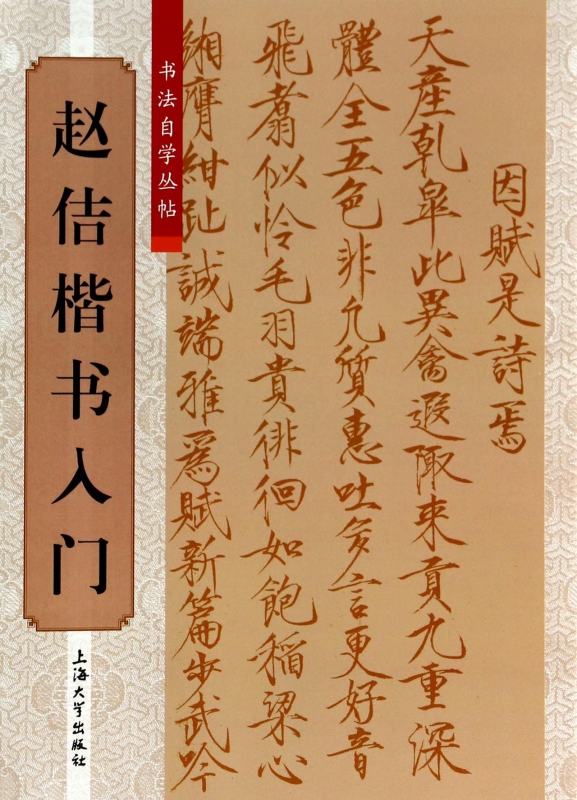 书法自学丛帖
赵佶楷书入门
上海大学出版社
因赋是诗焉
天產乾皋此異禽遐陬来貢九重深
體全五色非凡質惠吐多言更好音
飛翥似怜毛羽貴徘徊如飽稲粱心
緗膺紺趾誠端雅爲賦新篇步武吟